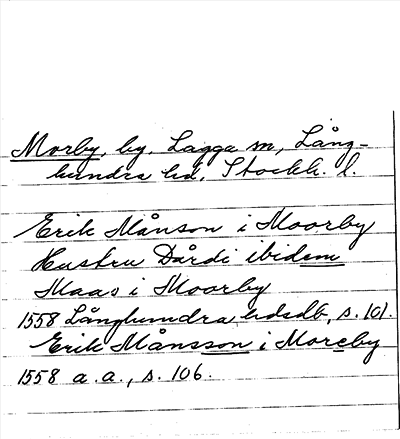 Morby, by, Lagga sn, Lång-
hundra hd, Stockh. l.
Erik Månson i Moorby
Hustru Dårdi ibidem
Maas i Moorby
1558 Långhundra hdsdb, s. 101.
Erik Månsson i Moreby
1558 a. a., s. 106.